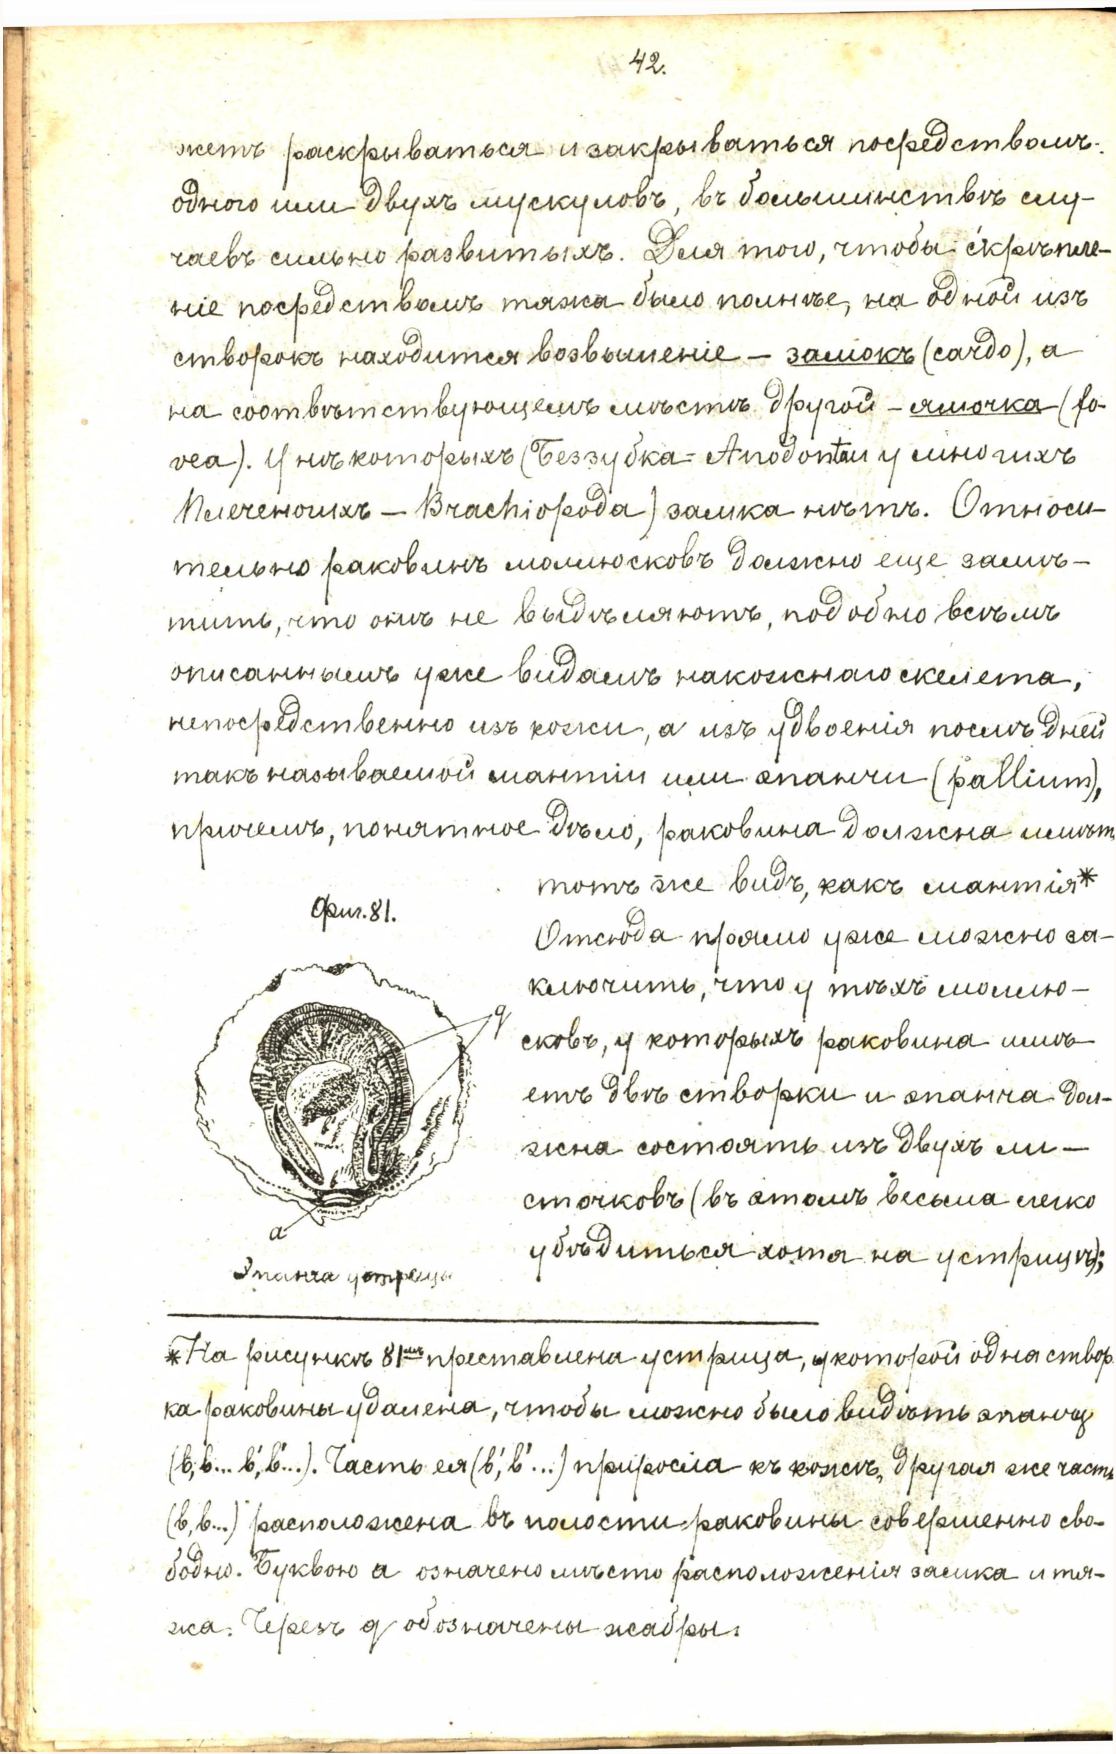 42.
жетъ раскрываться и закрываться посредствомъ
одного или двухъ мускуловъ, въ большинствѣ слу-
чаевъ сильно развитыхъ. Для того, чтобы скрѣпле-
ніе посредствомъ тяжа было полнѣе, на одной изъ
створокъ находится возвышеніе – замокъ (cardo), а
на соотвѣтствующемъ мѣстѣ другой – ямочка (fo-
vea). У нѣкоторыхъ (Беззубка = Anodonta и у многихъ
Плеченогихъ – Brachiopoda) замка нѣтъ. Относи-
тельно раковинъ моллюсковъ должно еще замѣ-
тить, что онѣ не выдѣляютъ, подобно всѣмъ
описаннымъ уже видамъ накожнаго скелета,
непосредственно изъ кожи, а изъ удвоенія послѣдней
такъ называемой мантіи или эпанчи (pallium),
причемъ, понятное дѣло, раковина должна имѣть
тотъ же видъ, какъ мантія*
Отсюда прямо уже можно за-
ключить, что у тѣхъ моллю-
сковъ, у которыхъ раковина имѣ
етъ двѣ створки и эпанча дол-
жна состоять изъ двухъ ли-
сточковъ (въ этомъ весьма легко
убѣдиться хотя на устрицѣ);
Фиг. 81.
q
a
Эпанча устрицы
*На рисункѣ 81мъ преставлена устрица, у которой одна створ
ка раковины удалена, чтобы можно было видѣть эпанчу
(в, в... в', в'...). Часть ея (в', в'...) приросла къ кожѣ, другая же часть
(в, в...) расположена въ полости раковины совершенно сво-
бодно. Буквою а означено мѣсто расположенія замка и тя-
жа. Черезъ q обозначены жабры.